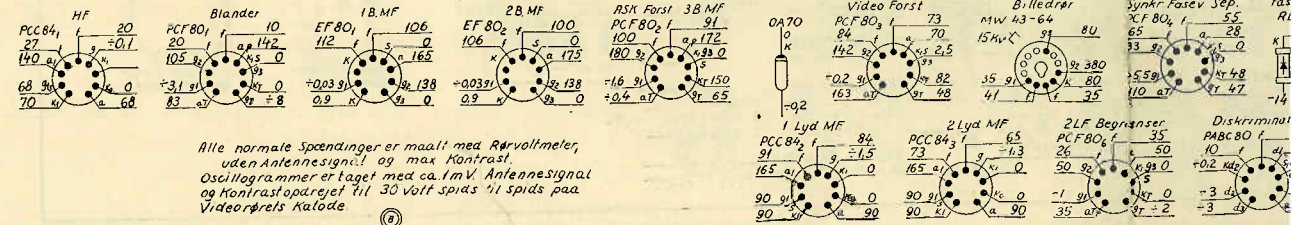 HF
PCC84₁ f f 20
27 g ÷0,1
140 a₁ K₁ 0
68 g₁ 0
70 K₁ a 68
Blander
PCF80₁ f f 10
20 ap 142
105 g2 K₁S 0
g3
÷3,1 g1 KT 0
83 aT gT ÷8
1B.MF
EF80₁ f f 106
112 S 0
K a 165
÷0,03 g1 g2 138
0,9 K g3 0
2B.MF
EF80₂ f f 100
106 S 0
K a 175
÷0,03 g1 g2 138
0,9 K g3 0
ASK Forst 3B MF
PCF80₂ f f 91
100 f ap 172
180 g2 K₁g3 0
S
-1,6 g1 KT 150
÷0,4 aT gT 65
OA70
0
K
÷0,2
Video Forst
PCF80₃ f f 73
84 a 70
142 g2 K₁S 2,5
g3
÷0,2 g1 KT 82
163 aT gT 48
Billedrør
MW 43-64
15Kv g3 80
g2 380
35 g1 K 80
41 f f 35
Synkr Fasev Sep.
PCF80₄ f 55
65 28
33 g2 S 0
÷5,5 g1 KT 48
110 aT gT 47
K
-14
Alle normale Spændinger er maalt med Rørvoltmeter,
uden Antennesignal og max Kontrast.
Oscillogrammer er taget med ca. 1mV. Antennesignal
og Kontrast opdrejet til 30 Volt spids til spids paa
Videorørets Katode
8
1 Lyd MF
PCC84₂ f f 84
91 g ÷1,5
165 a₁ K₁ 0
90 g₁ 0
90 K₁ a 90
2 Lyd MF
PCC84₃ f f 65
73 g ÷1,3
165 a₁ K₁ 0
90 g₁ 0
90 K₁ a 90
2LF Begrænser
PCF80₆ f f 35
26 50
50 g2 K₁g3 0
S
-1 g1 KT 0
35 aT gT ÷2
Diskriminat
PABC80 f
10 f d₁
÷0,2 Kd₂
÷3 d₂
÷3 d₃